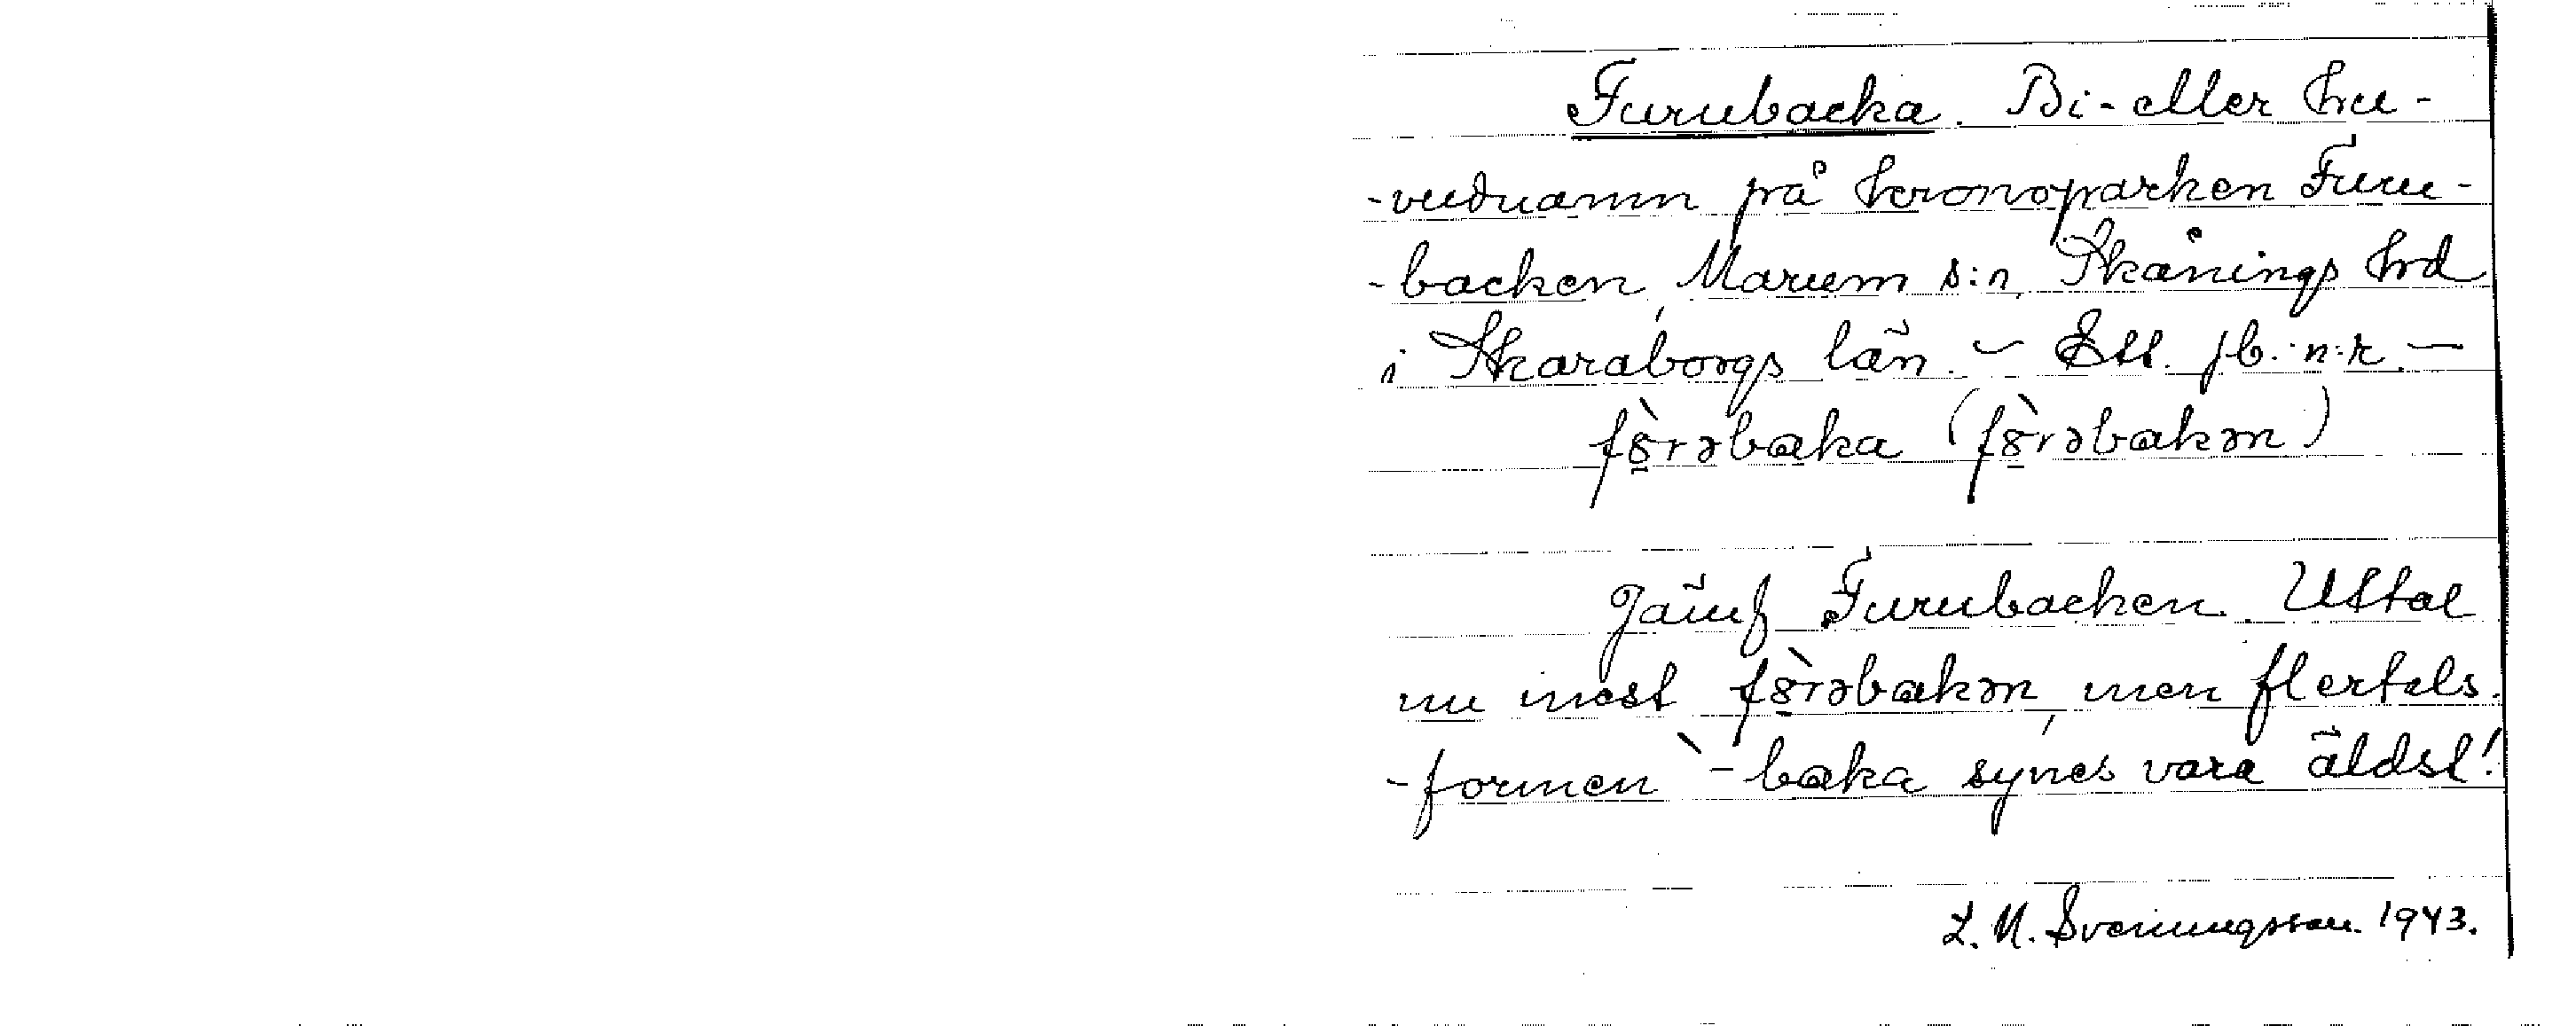 Furubacka. Bi- eller hu-
-vudnamn på kronoparken Furu-
-backen, Marum s:n, Skånings hd
i Skaraborgs län. – Ett. jb. n:r. –
fòrəbaka (fòrəbakən)
Jämf Furubacken. Uttal
nu mest fòrəbakən, men flertals-
-formen -baka synes vara äldst!
L. M. Svenungsson. 1943.